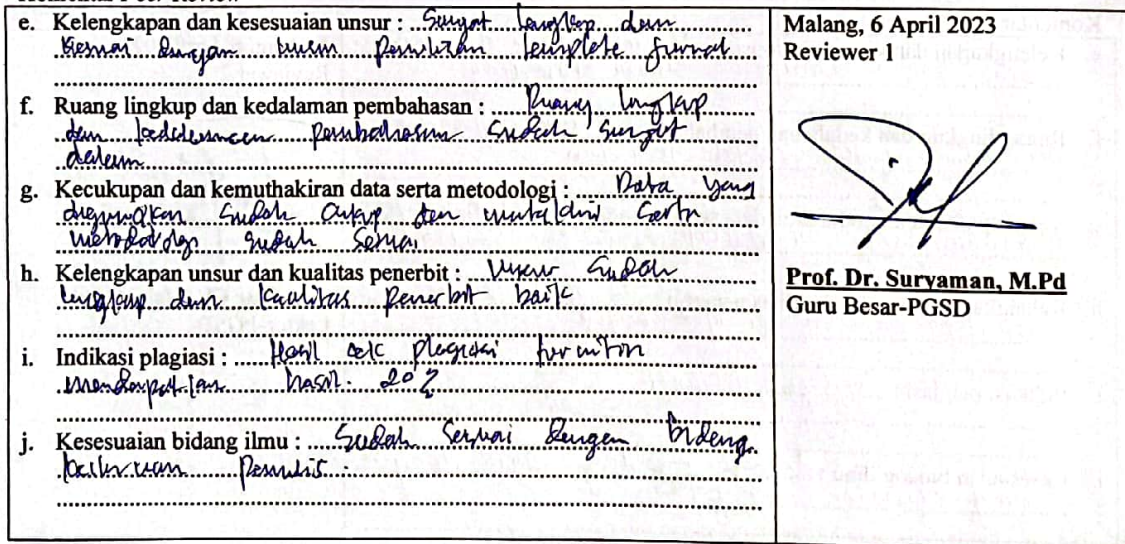 e. Kelengkapan dan kesesuaian unsur : Sangat lengkap dan
sesuai dengan unsur penulisan template jurnal
f. Ruang lingkup dan kedalaman pembahasan : Ruang lingkup
dan kedalaman pembahasan sudah sangat
dalam
g. Kecukupan dan kemuthakiran data serta metodologi : Data yang
digunakan sudah cukup dan mutakhir serta
metodologi sudah sesuai
h. Kelengkapan unsur dan kualitas penerbit : Unsur sudah
lengkap dan kualitas penerbit baik
i. Indikasi plagiasi : Hasil cek plagiasi turnitin
mendapatkan hasil: 20%
j. Kesesuaian bidang ilmu : Sudah sesuai dengan bidang
keilmuan penulis.
Malang, 6 April 2023
Reviewer 1
Prof. Dr. Suryaman, M.Pd
Guru Besar-PGSD